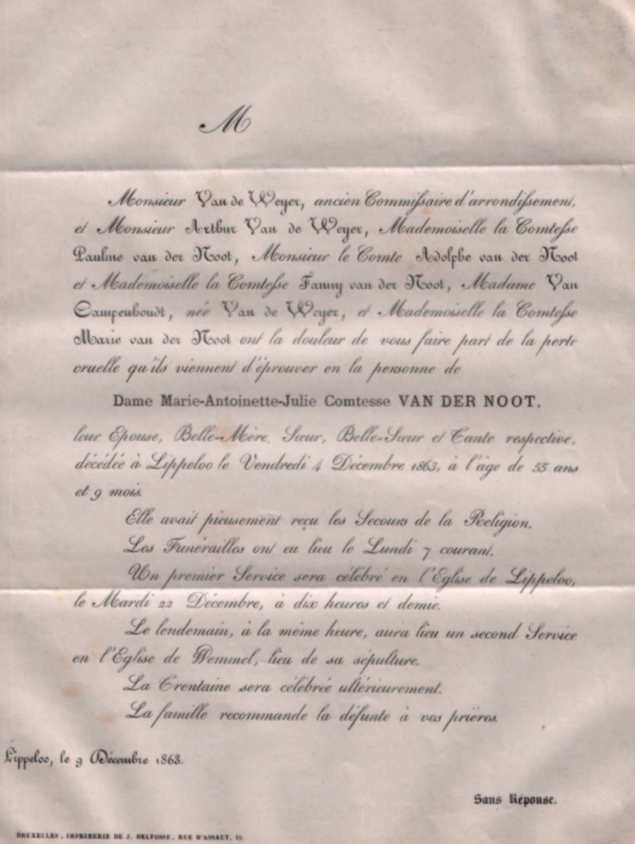 M
Monsieur Van de Weyer, ancien Commissaire d'arrondissement,
et Monsieur Arthur Van de Weyer, Mademoiselle la Comtesse
Pauline van der Noot, Monsieur le Comte Adolphe van der Noot
et Mademoiselle la Comtesse Fanny van der Noot, Madame Van
Campenhoudt, née Van de Weyer, et Mademoiselle la Comtesse
Marie van der Noot ont la douleur de vous faire part de la perte
cruelle qu'ils viennent d'éprouver en la personne de
Dame Marie-Antoinette-Julie Comtesse VAN DER NOOT,
leur Epouse, Belle-Mère, Sœur, Belle-Sœur et Tante respective,
décédée à Lippeloo le Vendredi 4 Décembre 1863, à l'âge de 55 ans
et 9 mois.
Elle avait pieusement reçu les Secours de la Religion.
Les Funérailles ont eu lieu le Lundi 7 courant.
Un premier Service sera célébré en l'Eglise de Lippeloo,
le Mardi 22 Décembre, à dix heures et demie.
Le lendemain, à la même heure, aura lieu un second Service
en l'Eglise de Wemmel, lieu de sa sépulture.
La Trentaine sera célébrée ultérieurement.
La famille recommande la défunte à vos prières.
Lippeloo, le 9 Décembre 1863.
Sans Réponse.
BRUXELLES, IMPRIMERIE DE J. DELFOSSE, RUE D'ASSAUT,